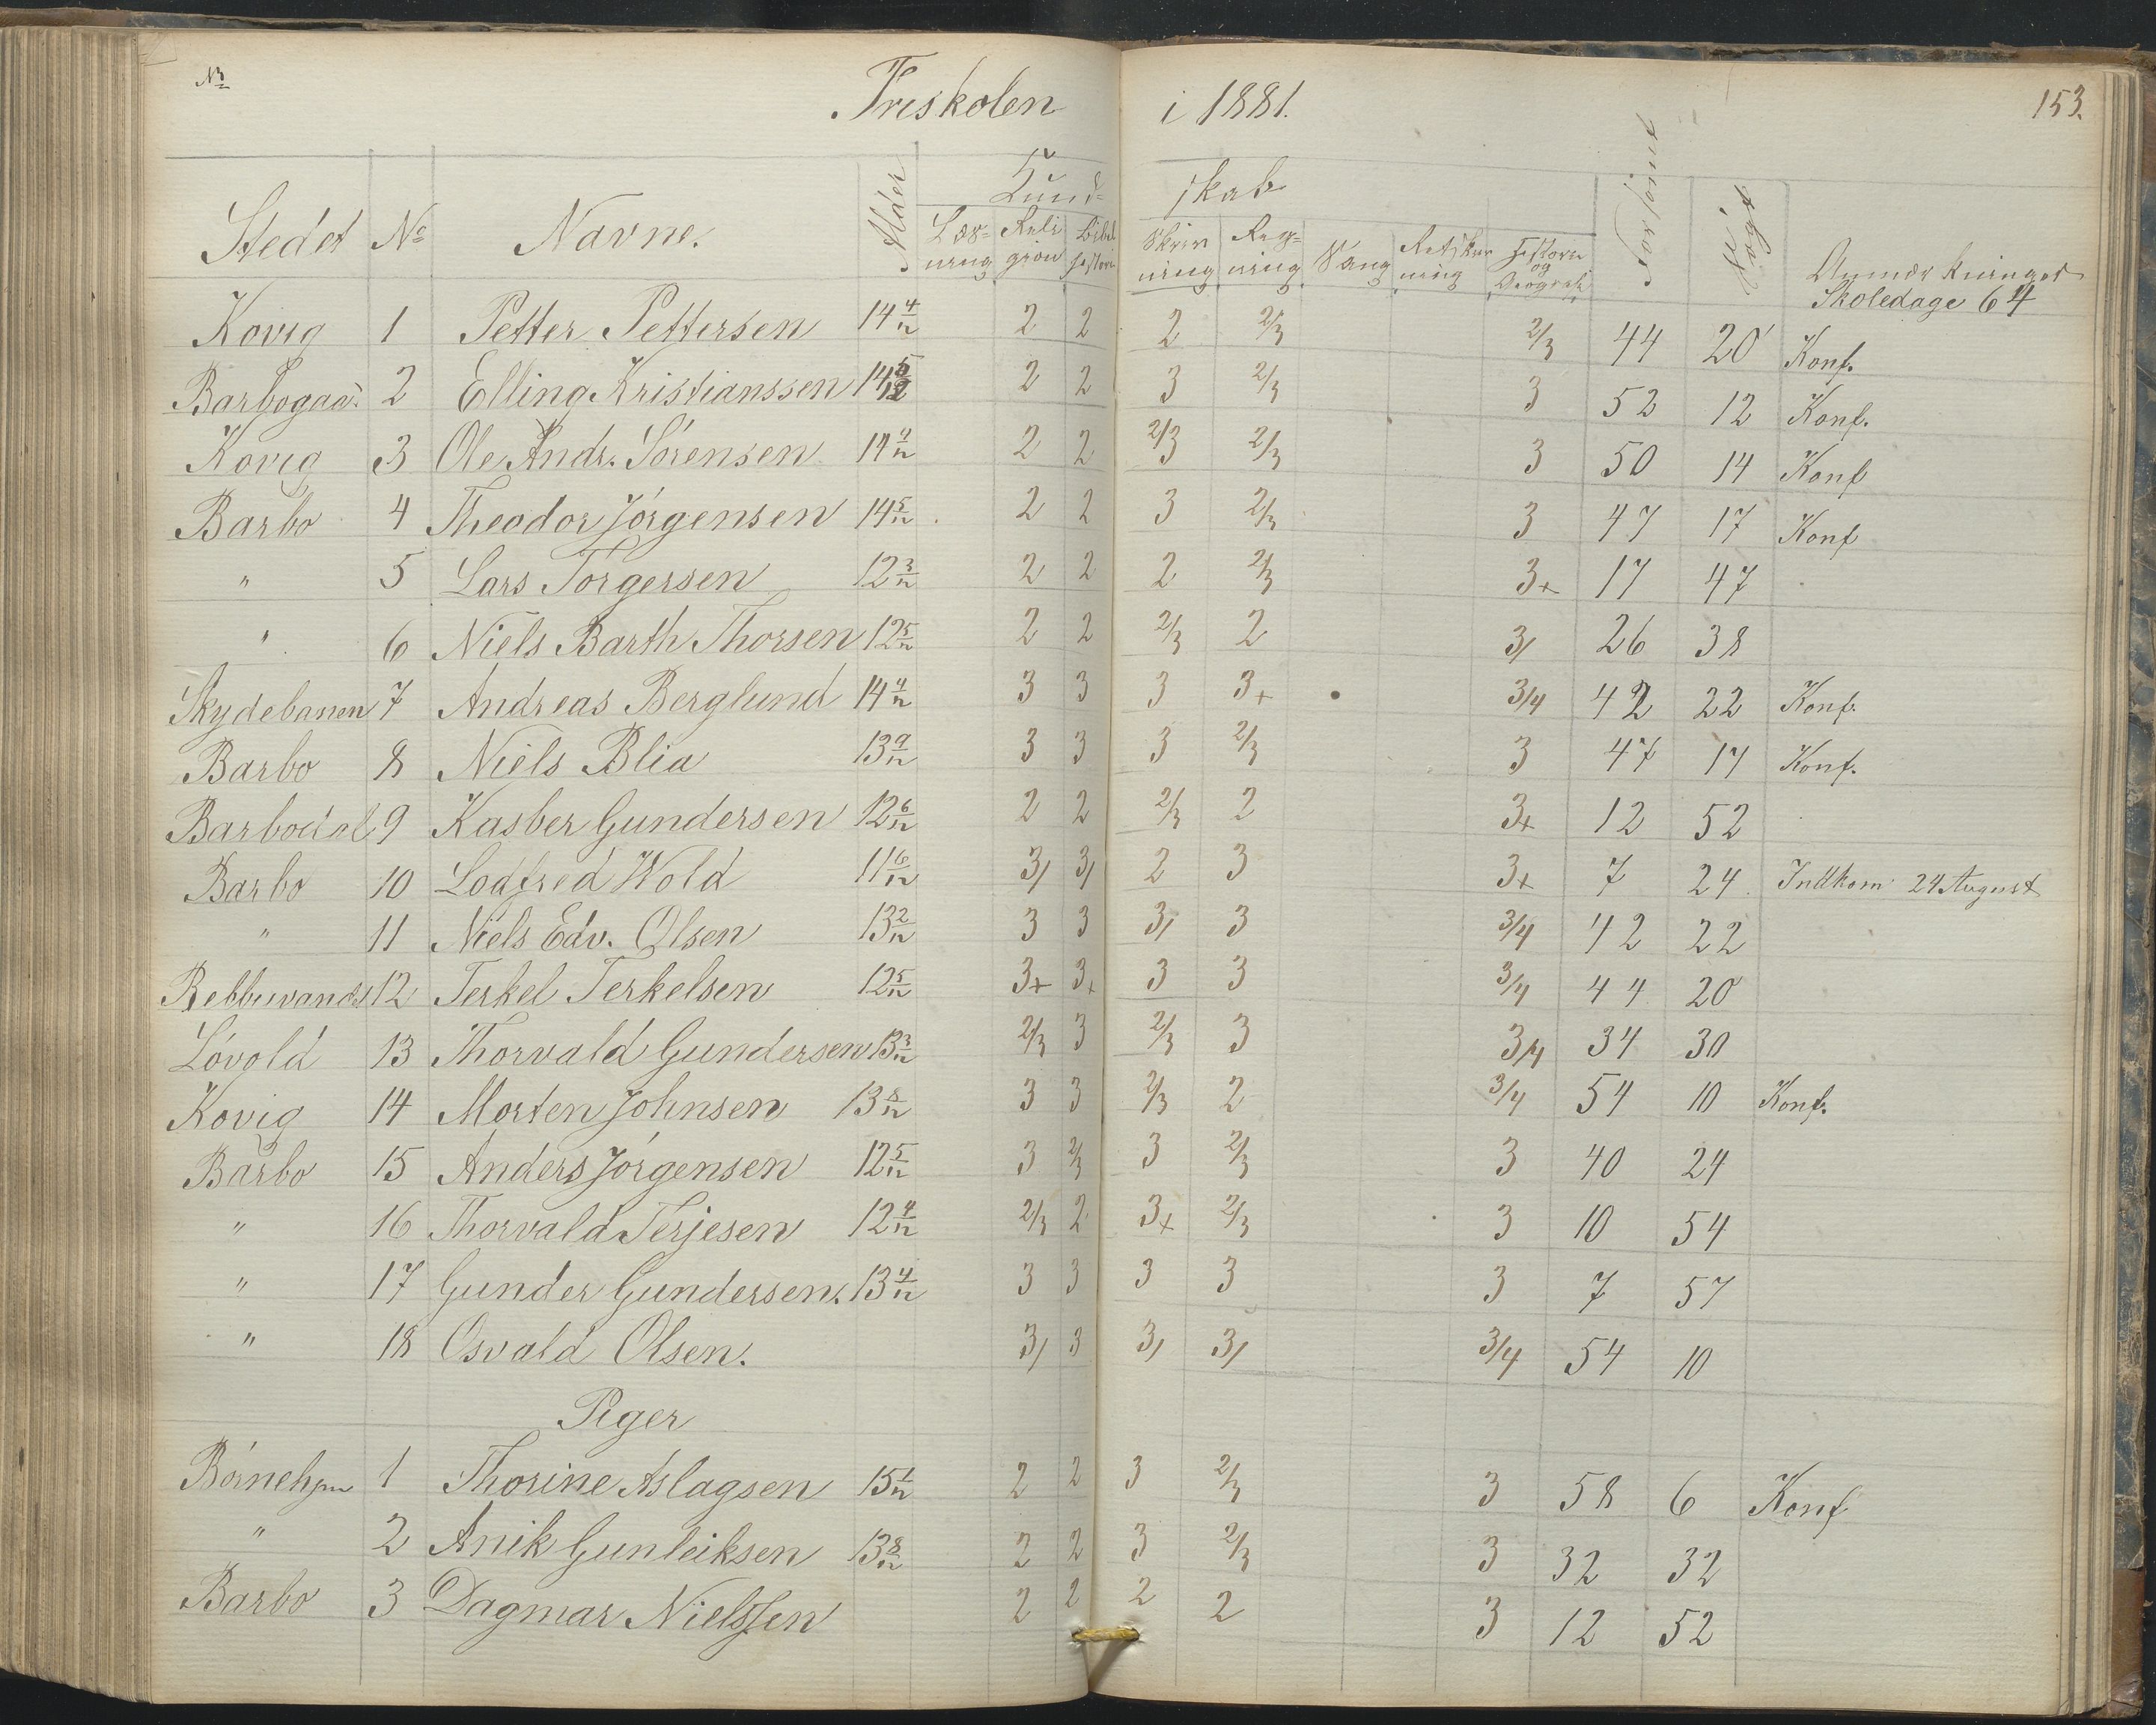 No
Friskolen i 1881. 153.
Kund- skab
Stedet No Navne. Alder Læs- ning Reli gion Bibel historie Skriv ning Reg- ning Sang Retskriv ning Historie og Geografi Forsømt Søgt Anmærkninger
Skoledage 64
Kovig 1 Petter Pettersen 14 4/12 2 2 2 2/3 2/3 44 20 Konf.
Barbogaa. 2 Elling Kristianssen 14 5/12 2 2 3 2/3 3 52 12 Konf.
Kovig 3 Ole Andr. Sörensen 14 4/12 2 2 2/3 2/3 3 50 14 Konf
Barbo 4 Theodor Jörgensen 14 5/12 2 2 3 2/3 3 47 17 Konf
" 5 Lars Torgersen 12 3/12 2 2 2 2/3 3+ 17 47
" 6 Niels Barth Thorsen 12 5/12 2 2 2/3 2 3/ 26 38
Skydebanen 7 Andreas Berglund 14 4/12 3 3 3 3+ 3/4 42 22 Konf.
Barbo 8 Niels Blia 13 9/12 3 3 3 2/3 3 47 17 Konf.
Barbodal 9 Kasber Gundersen 12 6/12 2 2 2/3 2 3+ 12 52
Barbo 10 Lodfred Wold 11 6/12 3/ 3/ 2 3 3+ 7 24 Indkom 24 August
" 11 Niels Edv. Olsen 13 2/12 3 3 3/ 3 3/4 42 22
12 Terkel Terkelsen 12 5/12 3+ 3+ 3 3 3/4 44 20
Lövold 13 Thorvald Gundersen 13 3/12 2/3 3 2/3 3 3/4 34 30
Kovig 14 Morten Johnsen 13 8/12 3 3 2/3 2 3/4 54 10 Konf.
Barbo 15 Anders Jörgensen 12 5/12 3 2/3 3 2/3 3 40 24
" 16 Thorvald Terjesen 12 4/12 2/3 2 3+ 2/3 3 10 54
" 17 Gunder Gundersen. 13 4/12 3 3 3 3 3 7 57
" 18 Osvald Olsen. 3/ 3 3/ 3/ 3/4 54 10
Piger
Börnehjm 1 Thorine Aslagsen 15 1/12 2 2 3 2/3 3 58 6 Konf
" 2 Anik Gunleiksen 13 8/12 2 2 3 2/3 3 32 32
Barbo 3 Dagmar Nielssen 2 2 2 2 3 12 52